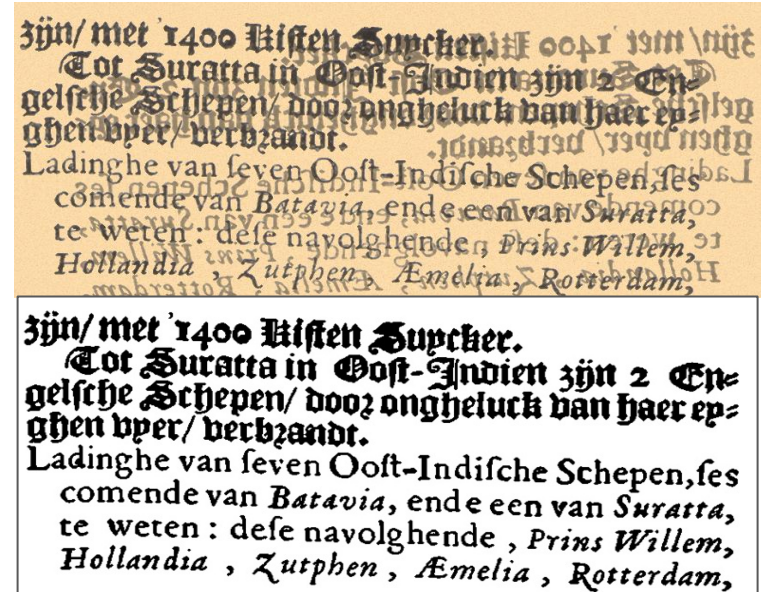 zijn/ met '1400 Kisten Suycker.
Tot Suratta in Oost-Indien zijn 2 En⸗
gelsche Schepen/ dooꝛ ongheluck van haer ey⸗
ghen vyer/ verbꝛandt.
Ladinghe van ſeven Ooſt-Indiſche Schepen, ſes
comende van Batavia, ende een van Suratta,
te weten : deſe navolghende , Prins Willem,
Hollandia , Zutphen , Æmelia , Rotterdam,
zijn/ met '1400 Kisten Suycker.
Tot Suratta in Oost-Indien zijn 2 En⸗
gelsche Schepen/ dooꝛ ongheluck van haer ey⸗
ghen vyer/ verbꝛandt.
Ladinghe van ſeven Ooſt-Indiſche Schepen, ſes
comende van Batavia, ende een van Suratta,
te weten : deſe navolghende , Prins Willem,
Hollandia , Zutphen , Æmelia , Rotterdam,